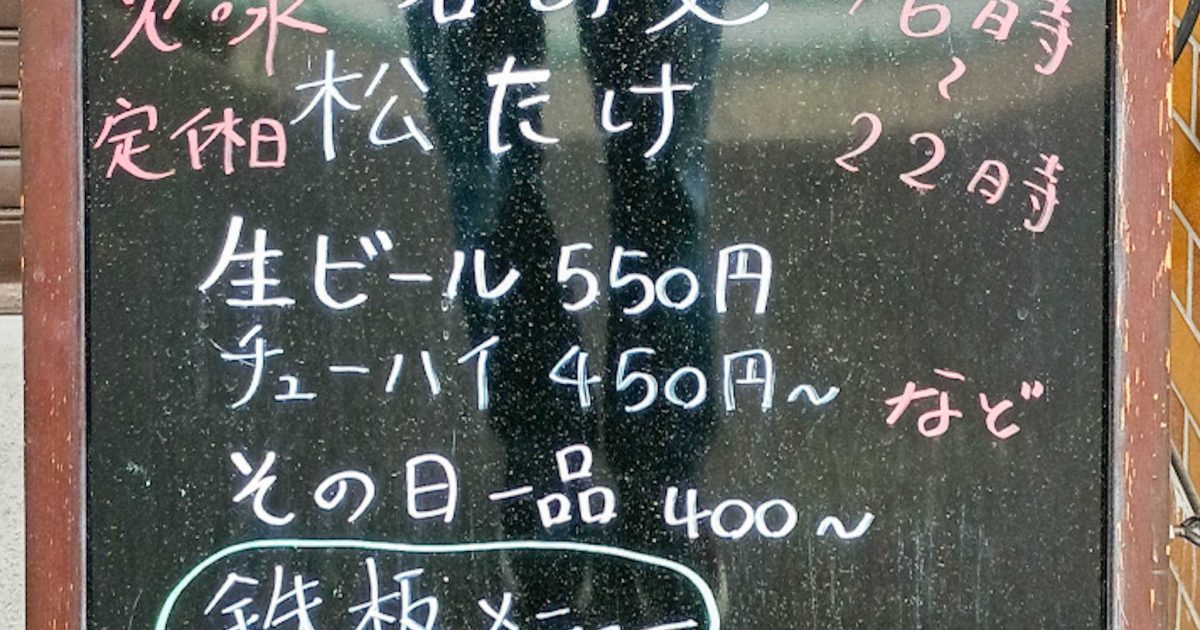 火・水
定休日
松たけ
6時
～
22時
生ビール 550円
チューハイ 450円～
など
その日一品 400～
鉄板メニュー